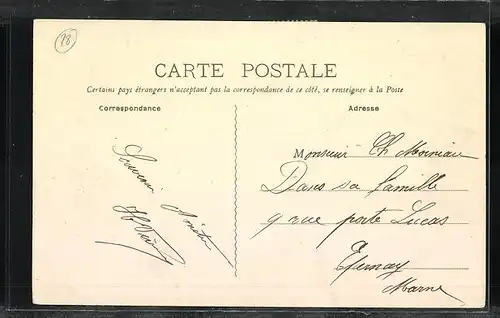 78
CARTE POSTALE
Certains pays étrangers n'acceptant pas la correspondance de ce côté, se renseigner à la Poste
Correspondance
Adresse
Souvenir
Monsieur Ch
Dans sa famille
9 rue porte Lucas
Epernay
Marne